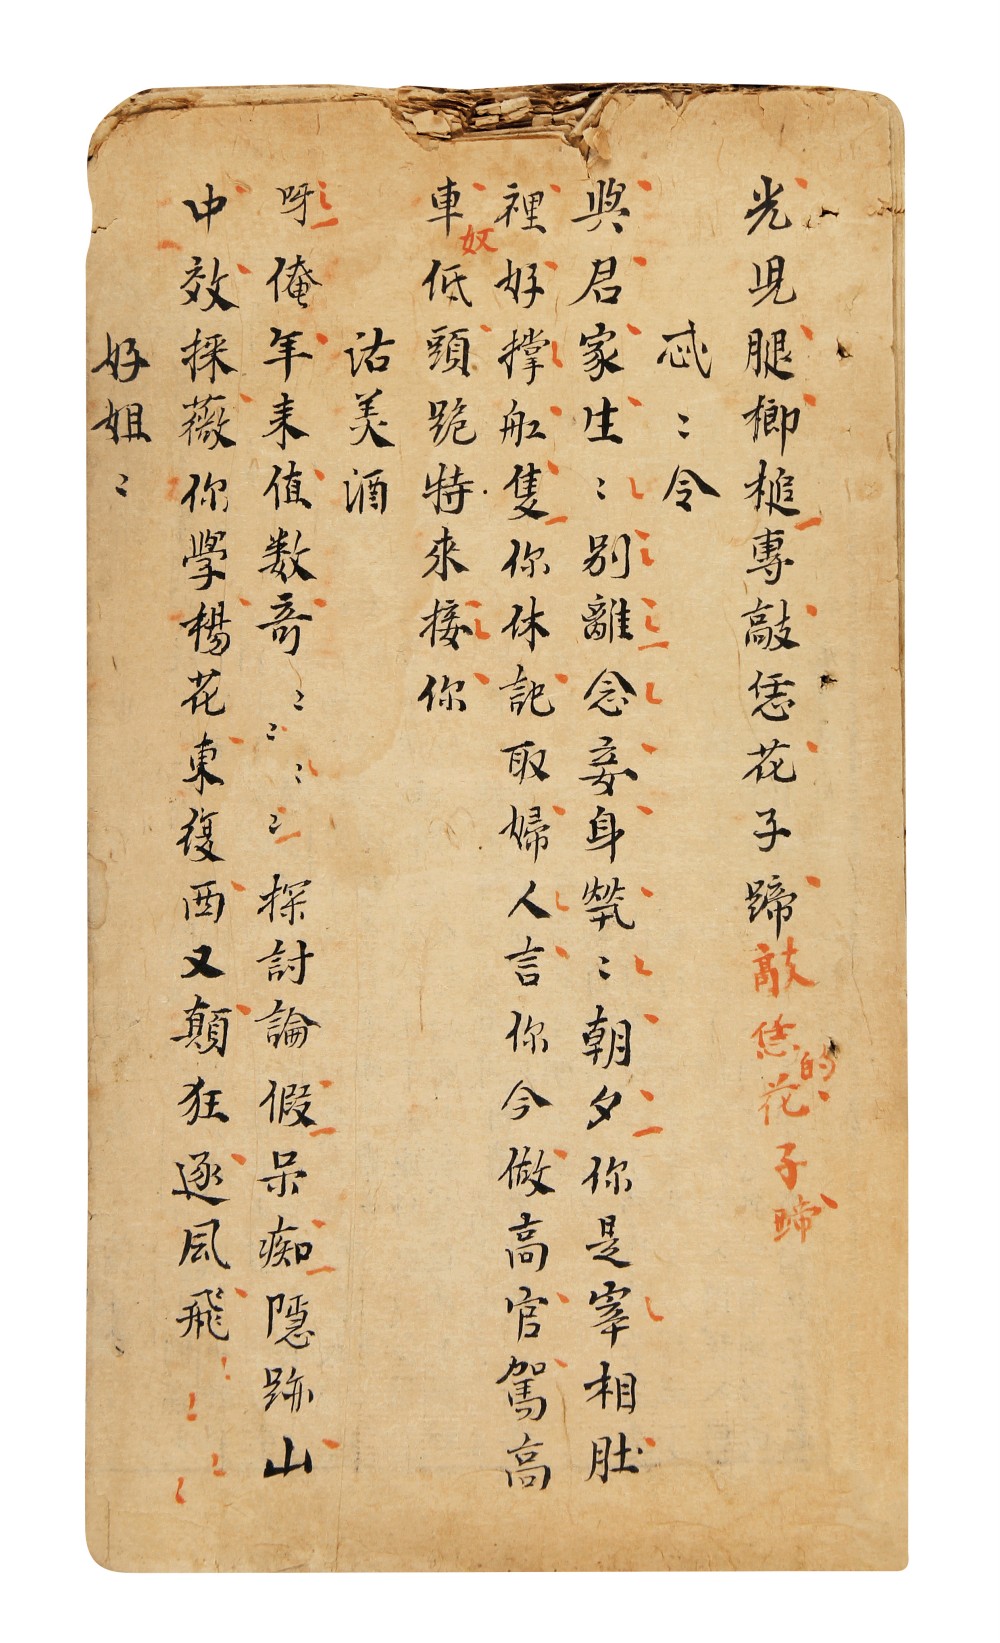 光児腿榔槌專敲恁花子蹄敲恁的花子蹄
忒〻令
與君家生〻別離念妾身煢〻朝夕你是宰相肚
裡好撑舡隻你休記取婦人言你今做高官駕高
車奴低頭跪特來接你
沽美酒
呀俺年耒值数竒〻〻〻〻探討論假呆痴隱跡山
中效採薇你學楊花東復西又顛狂逐風飛
好姐〻